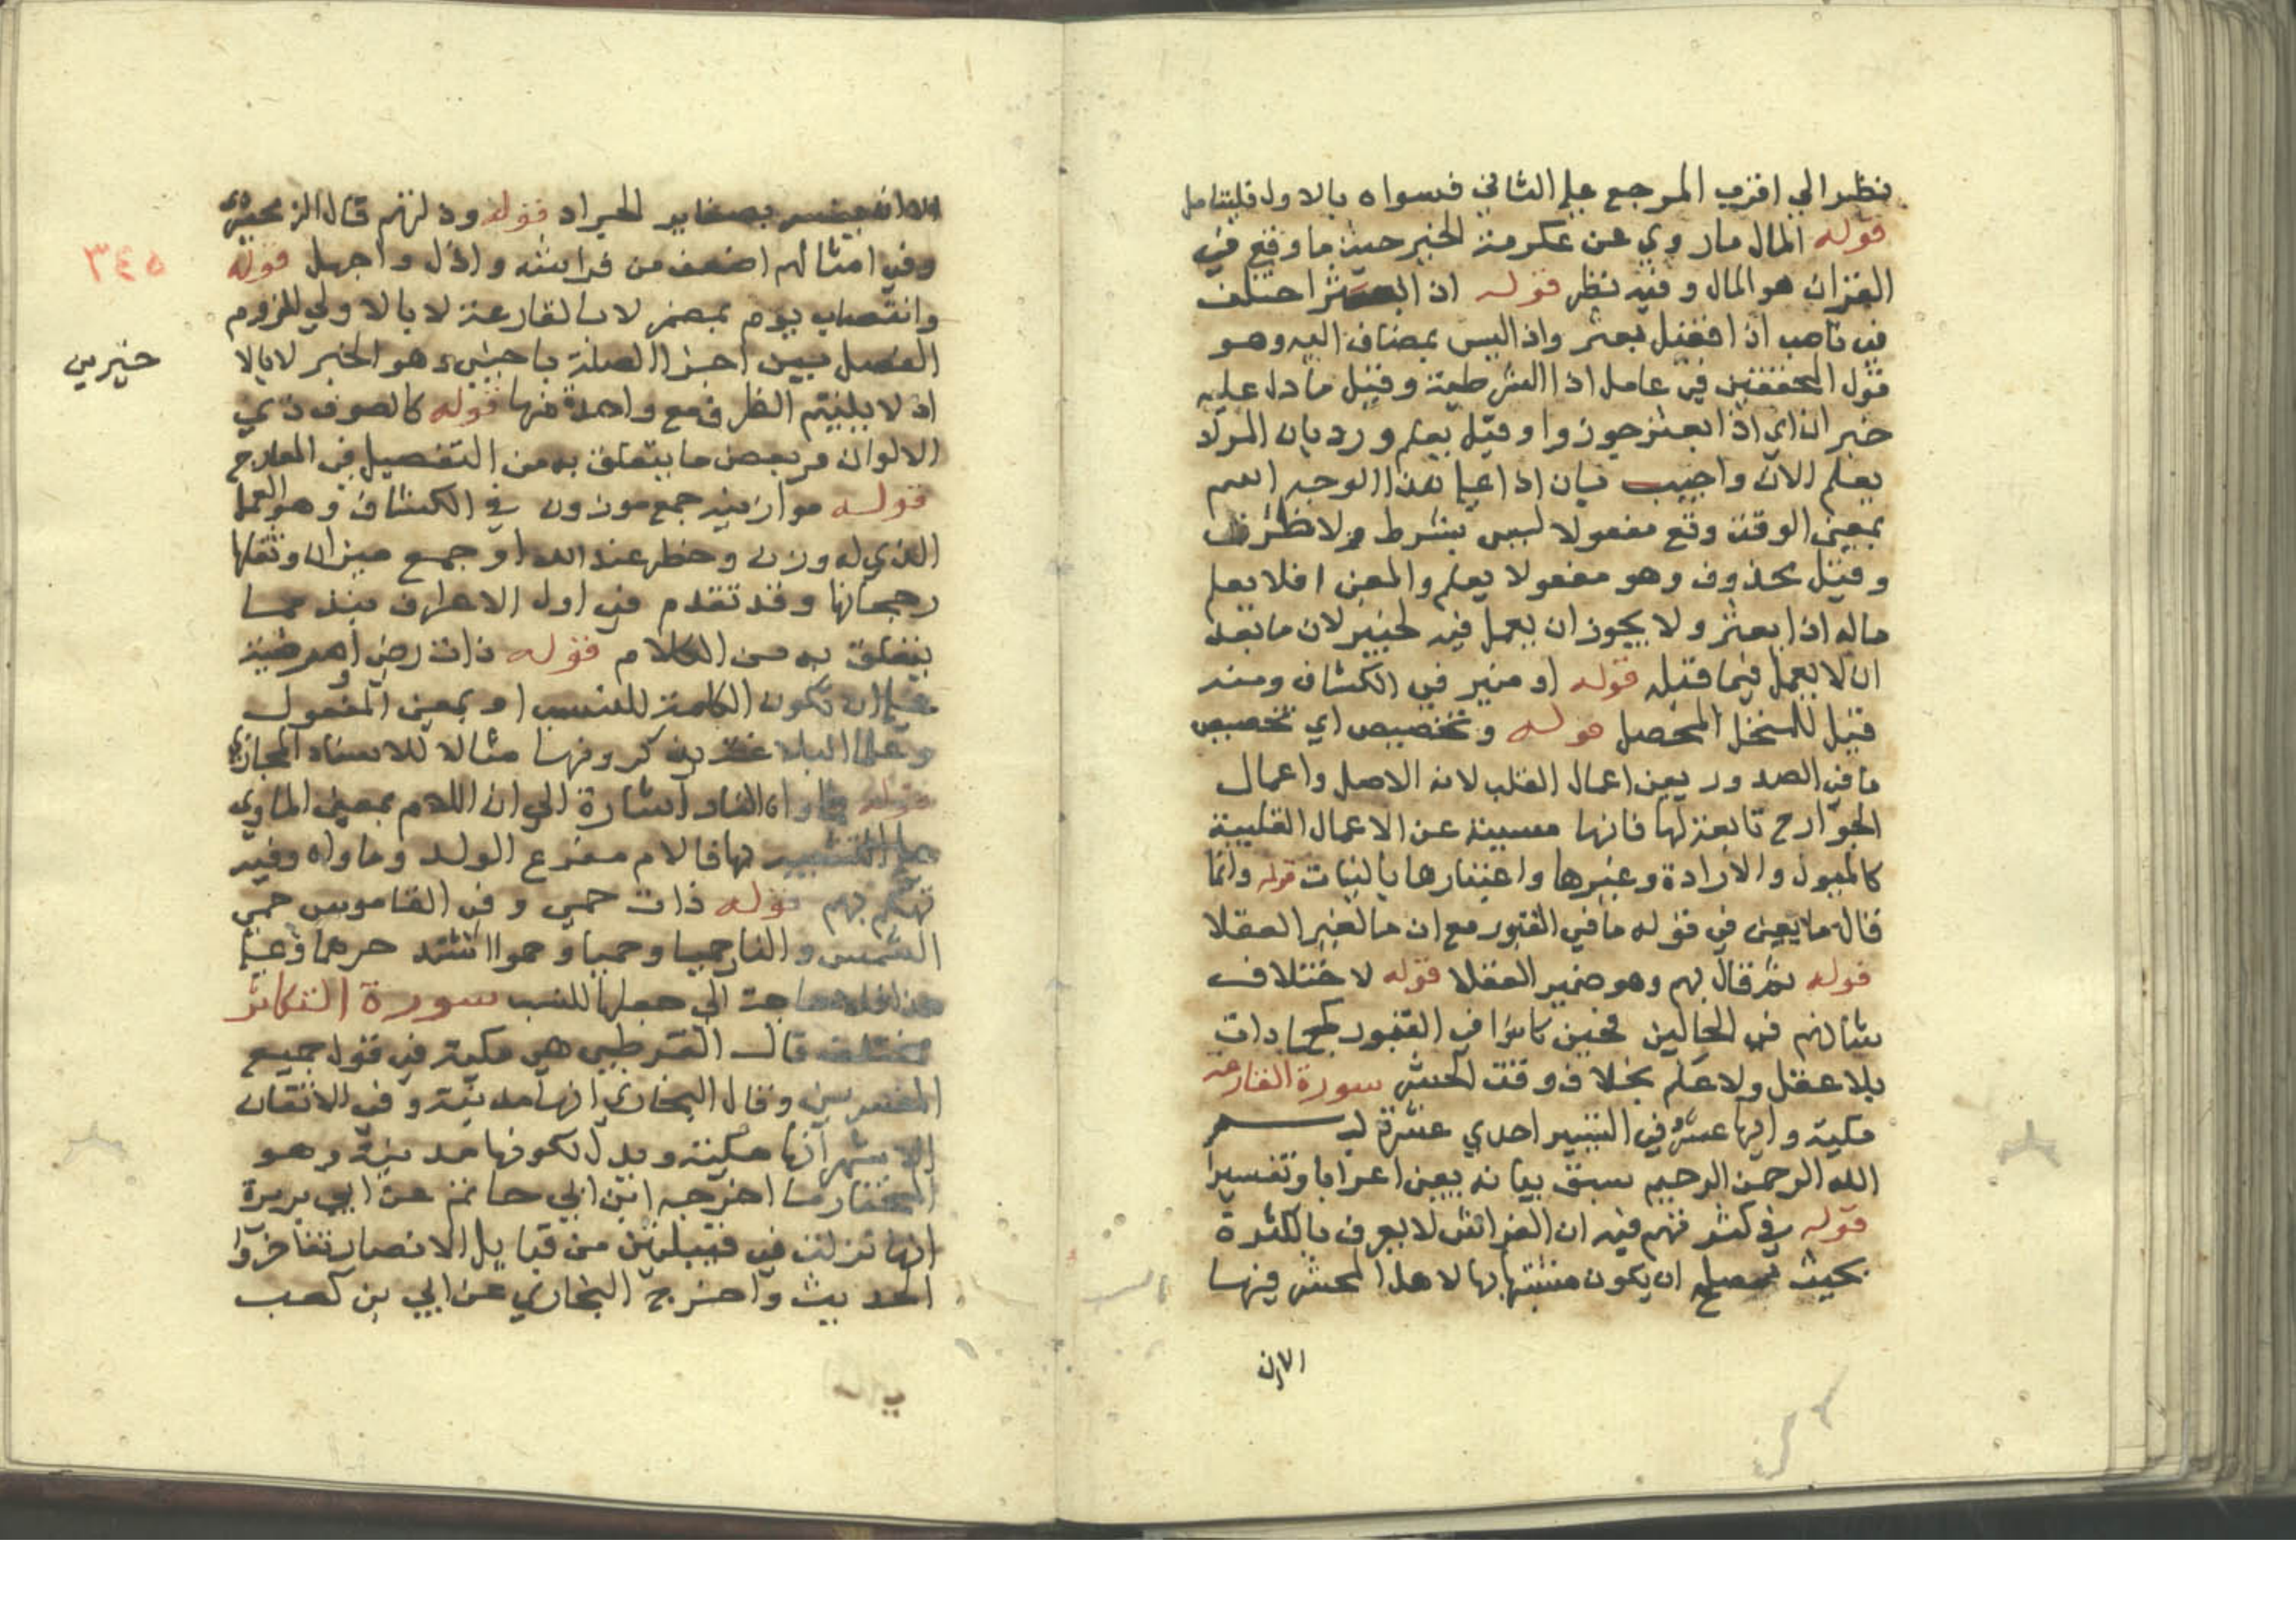 نظر الي اقرب المرجع علي الثاني فسواه بالاول فليتامل
قوله المال ما روي عن عكرمة الخير حيث ما وقع في
القران هو المال وفيه نظر قوله اذا بعثر اختلف
في ناصب اذا فقيل بعثر واذا ليس بمضاف اليه وهو
قول المحققين في عامل اذا الشرطية وقيل ما دل عليه
خبر ان اي اذا بعثر جوزوا وقيل يعلم ورد بان المراد
يعلم الان واجيب بان اذا علي هذا الوجه اسم
بمعني الوقت وقع مفعولا ليس بشرط ولا ظرف
وقيل محذوف وهو مفعولا يعلم والمعني افلا يعلم
ماله اذا بعثر ولا يجوز ان يعمل فيه لخبير لان ما بعد
ان لا يعمل فيما قبله قوله او ميز في الكشاف ومنه
قيل للمنخل المحصل قوله وتخصيص اي تخصيص
ما في الصدور يعني اعمال القلب لانه الاصل واعمال
الجوارح تابعة لها فانها مسببة عن الاعمال القلبية
كالميول والارادة وغيرها واعتبارها بالنيات قوله وانما
قال ما يعني في قوله ما في القبور مع ان ما لغير العقلا
قوله ثم قال بهم وهو ضمير العقلا قوله لاختلاف
شانهم في الحالين فحين كانوا في القبور كجمادات
بلا عقل ولا علم بخلاف وقت الحشر سورة القارعة
مكية وايها عشر وفي التيسير احدي عشرة بسم
الله الرحمن الرحيم سبق بيانه يعني اعرابا وتفسيرا
قوله في كثرتهم فيه ان الفراش لا يعرف بالكثرة
بحيث يصلح ان يكون مشبها بها لاهل المحشر فيها
الا ان
الا ان يفسر بصغاير الجراد قوله وذلتهم قال الزمخشري
وفي امثالهم اضعف من فراشة واذل واجهل قوله
وانتصاب يوم بمضمر لا بالقارعة لا بالاولي للزوم
الفصل بين اجزا الصلة باجنبي هو الخبر لا بالا
خيرين
اذ لا يلتيم الظرف مع واحدة منها قوله كالصوف ذي
الالوان مر بعض ما يتعلق به من التفصيل في المعارج
قوله موازينه جمع موزون في الكشاف وهو العمل
الذي له وزن وخطر عند الله او جمع ميزان وثقلها
رجحانها وقد تقدم في اول الاعراف نبذ مما
يتعلق به من الكلام قوله ذات رضي او مرضية
علي ان تكون الكلمة للنسب او بمعني المفعول
وعلما البلاغة يذكرونها مثالا للاسناد المجازي
قوله فماواه النار اشارة الي ان اللام بمعني الماوي
علي التشبيه بها فالام مفزع الولد وماواه وفيه
تهكم بهم قوله ذات حمي وفي القاموس حمي
الشمس والنار حميا وحميا وحموا اشتد حرهما وعلي
هذا فلا حاجة الي جعلها للنسب سورة التكاثر
مختلف قال القرطبي هي مكية في قول جميع
المفسرين وقال البخاري انها مدنية وفي الاتقان
الاشهر انها مكية ويدل لكونها مدنية وهو
المختار ما اخرجه ابن ابي حاتم عن ابي بريرة
انها نزلت في قبيلتين من قبايل الانصار تفاخروا
الحديث واخرج البخاري عن ابي بن كعب
٣٤٥